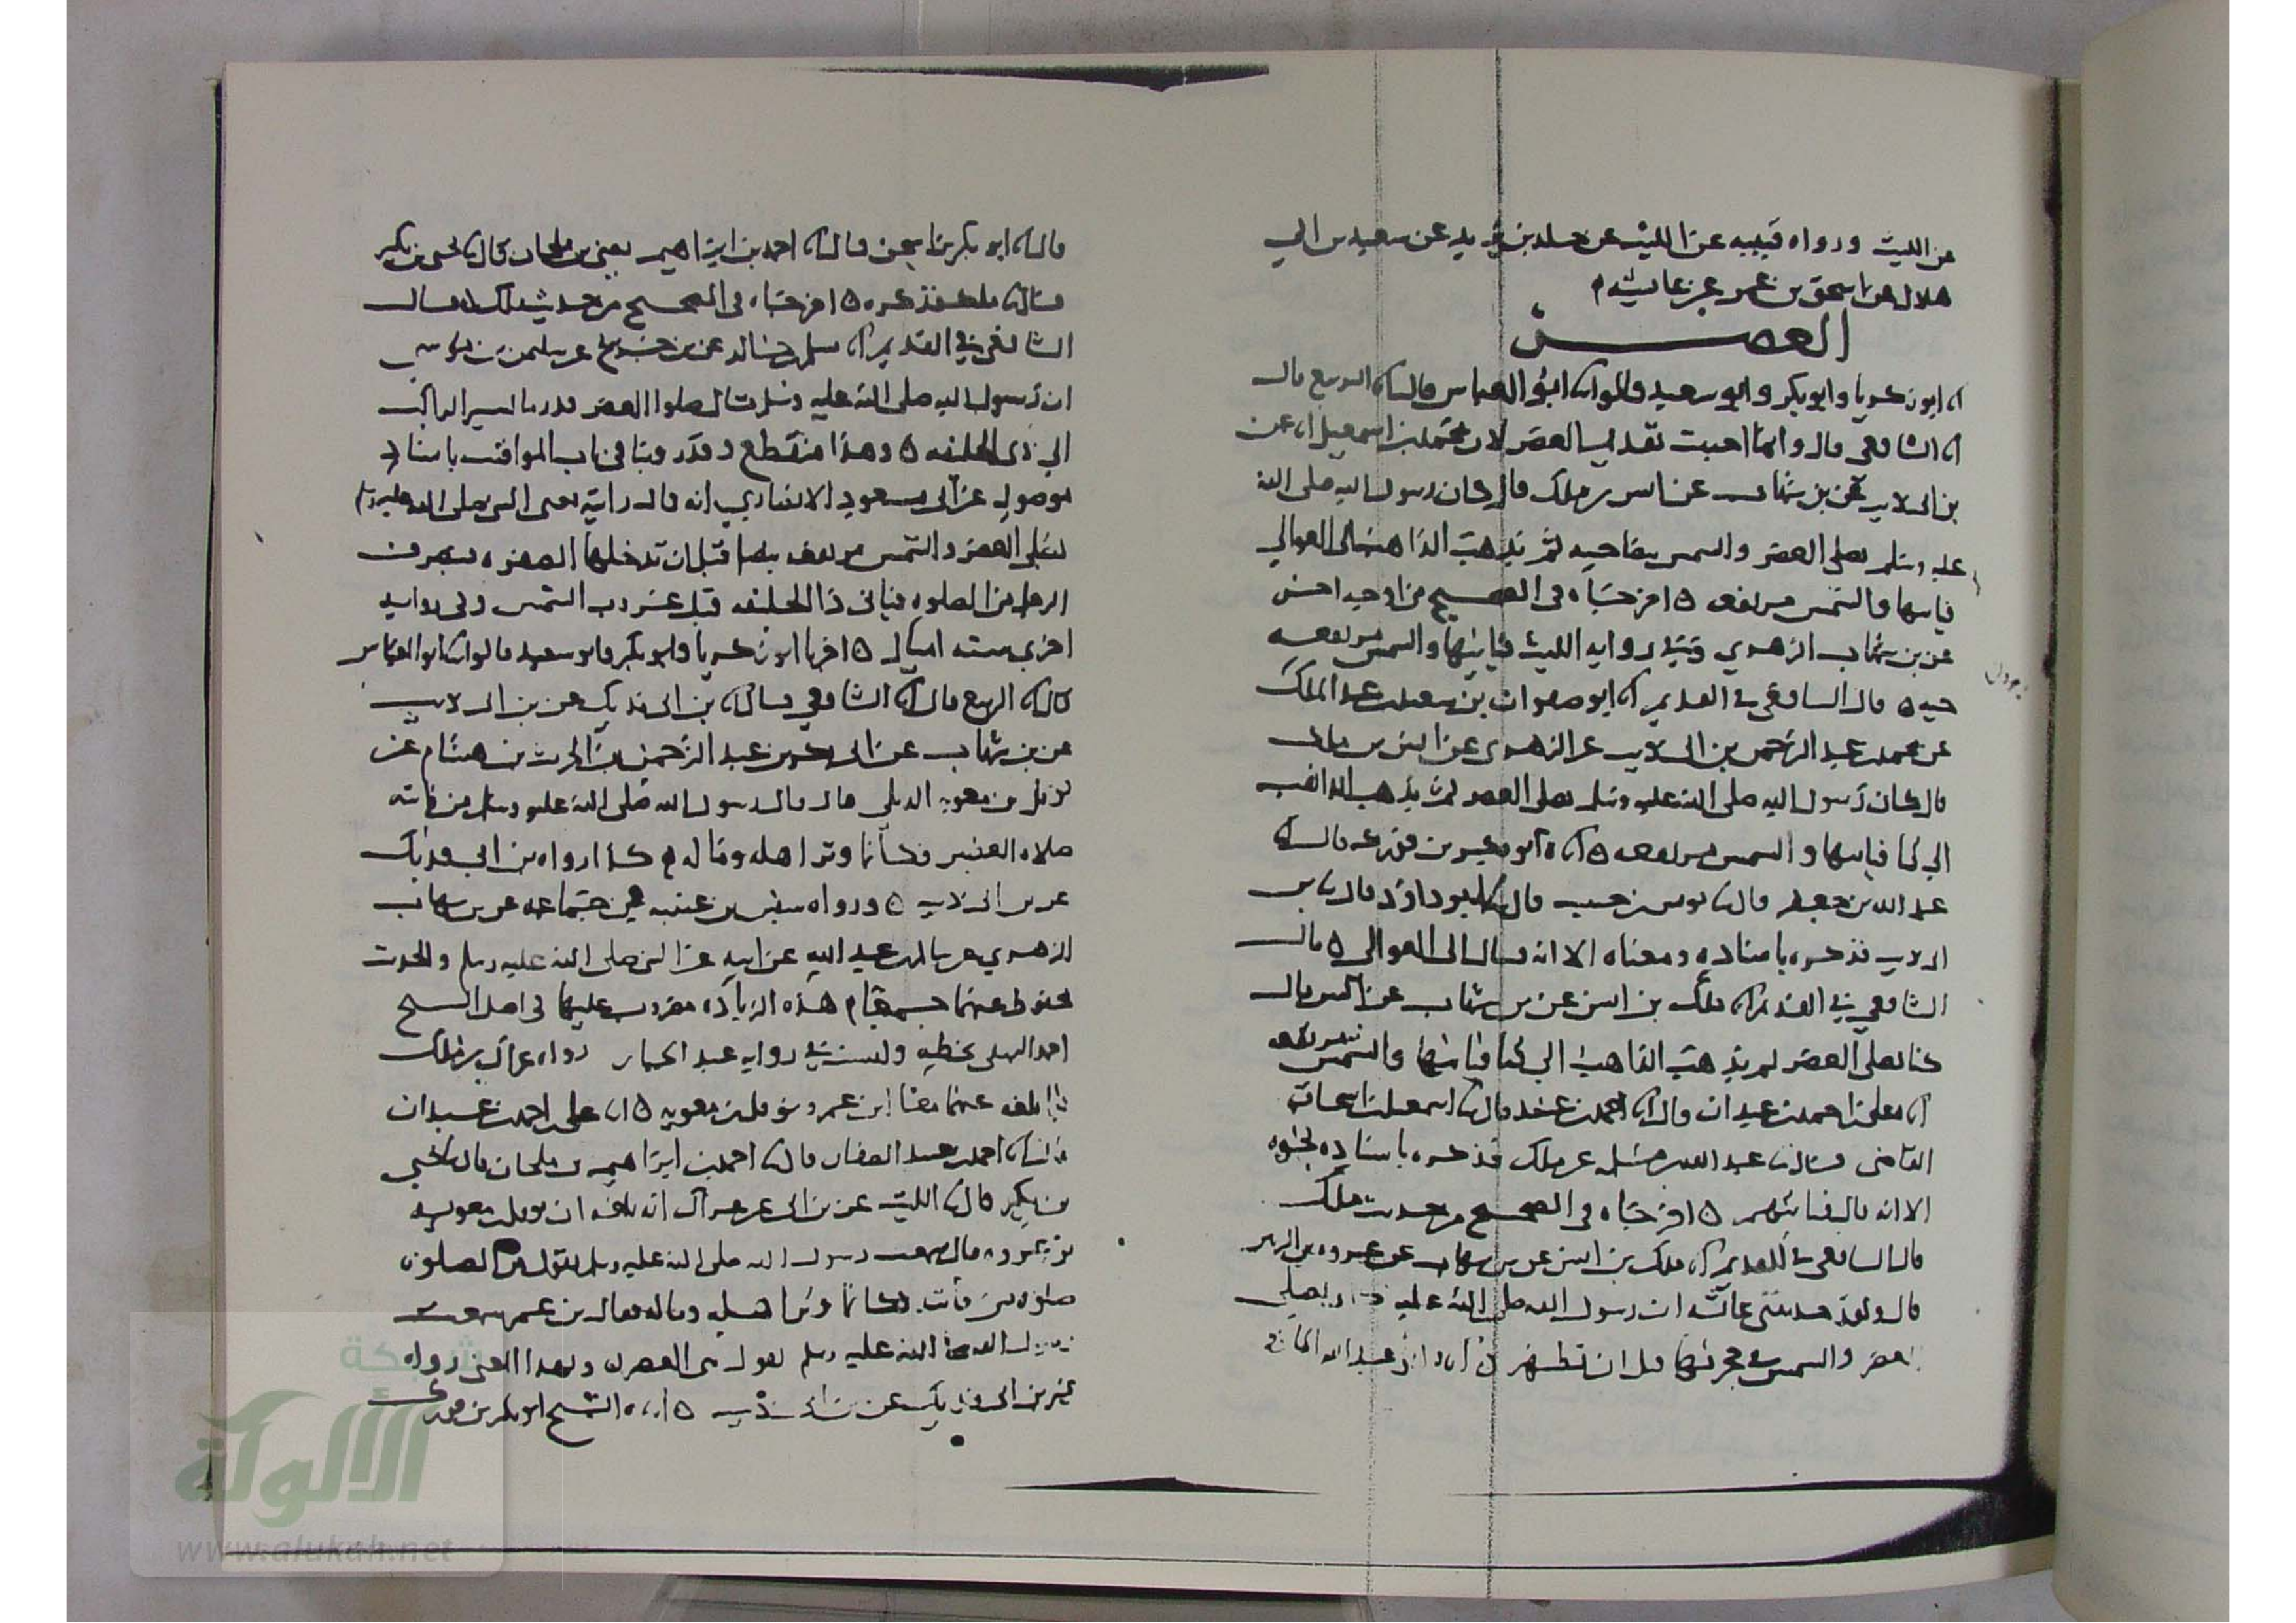 عن الليث ورواه قتيبه عن الليث عن خلد بن يزيد عن سعيد بن ابي
هلال عن اسحق بن عمر عن عايشه م
العصر
ابو زكريا وابو بكر وابو سعيد قالوا ابو العباس قال الربيع قال
الشافعي قال وانما احببت تقديم العصر لان محمد بن اسمعيل عن
بن ابي ذيب عن بن شهاب عن انس بن ملك قال كان رسول الله صلى الله
عليه وسلم يصلي العصر والشمس بيضا حيه ثم يذهب الذاهب الى العوالي
فياتيها والشمس مرتفعه ٥ اخرجاه في الصحيح من اوجه اخر
عن بن شهاب الزهري وفي روايه الليث فياتيها والشمس مرتفعه
حيه ٥ قال الشافعي في القديم ابو صفوان بن سعيد بن عبد الملك
عن محمد بن عبد الرحمن بن ابي ذيب عن الزهري عن انس بن ملك
قال كان رسول الله صلى الله عليه وسلم يصلي العصر ثم يذهب الذاهب
الى قبا فياتيها والشمس مرتفعه ٥ ابو بكر بن فورك قال
عبد الله بن جعفر قال يونس بن حبيب قال ابو داود قال بن
ابي ذيب فذكره باسناده ومعناه الا انه قال الى العوالي ٥ قال
الشافعي في القديم ملك بن انس عن بن شهاب عن انس قال
كنا نصلي العصر ثم يذهب الذاهب الى قبا فياتيها والشمس مرتفعه
علي بن احمد بن عبدان قال احمد بن عبيد قال اسمعيل بن اسحاق
القاضي قال عبد الله بن مسلمه عن ملك فذكره باسناده نحوه
الا انه قال فياتيهم ٥ اخرجاه في الصحيح من حديث ملك
قال الشافعي في القديم ملك بن انس عن بن شهاب عن عروه بن الزبير
قال ولقد حدثتني عائشه ان رسول الله صلى الله عليه يصلي
العصر والشمس في حجرتها قبل ان تظهر ابو عبد الله الحافظ
قال ابو بكر بن اسحق قال احمد بن ابراهيم يعني بن ملحان قال يحيى بن بكير
قال ملك فذكره ٥ اخرجاه في الصحيح من حديث ملك ٥ قال
الشافعي في القديم مسلم بن خالد عن بن جريج عن سليمن بن موسى
ان رسول الله صلى الله عليه وسلم قال صلوا العصر قدر ما يسير الراكب
الى ذي الحليفه ٥ وهذا منقطع وقد روينا في باب المواقيت باسناد
موصول عن ابي مسعود الانصاري انه قال رايته يعني النبي صلى الله عليه وسلم
يصلي العصر والشمس مرتفعه بيضا قبل ان تدخلها الصفره فينصرف
الرجل من الصلوه فياتي ذا الحليفه قبل غروب الشمس وفي روايه
اخرى سته اميال ٥ اخبرنا ابو زكريا وابو بكر وابو سعيد قالوا ابو العباس
قال الربيع قال الشافعي قال بن ابي فديك عن بن ابي ذيب
عن بن شهاب عن ابي بكر بن عبد الرحمن بن الحرث بن هشام عن
نوفل بن معويه الديلي قال قال رسول الله صلى الله عليه وسلم من فاتته
صلاه العصر فكانما وتر اهله وماله م كذا رواه بن ابي فديك
عن بن ابي ذيب ٥ ورواه سفين بن عيينه في جماعه عن بن شهاب
الزهري عن سالم بن عبد الله عن ابيه عن النبي صلى الله عليه وسلم والحديث
محفوظ عنهما جميعا م هذه الزياده مضروب عليها في اصل الشيخ
احمد البيهقي بخطه وليست في روايه عبد الجبار رواه عراك بن ملك
بلغه عنهما معا بن عمر ونوفل بن معويه ٥ علي بن احمد بن عبدان
قال احمد بن عبيد الصفار قال احمد بن ابراهيم بن ملحان قال يحيى
بن بكير قال الليث عن بن ابي عن عراك انه بلغه ان نوفل بن معويه
قال سمعت رسول الله صلى الله عليه وسلم يقول من الصلوه
صلوه من فاتته فكانما وتر اهله وماله فقال بن عمر سمعت
رسول الله صلى الله عليه وسلم يقول هي العصر ٥ وبهذا المعنى رواه
غير بن ابي فديك عن بن ابي ذيب ٥ الشيخ ابو بكر بن فورك
شبكة
الألوكة
www.alukah.net